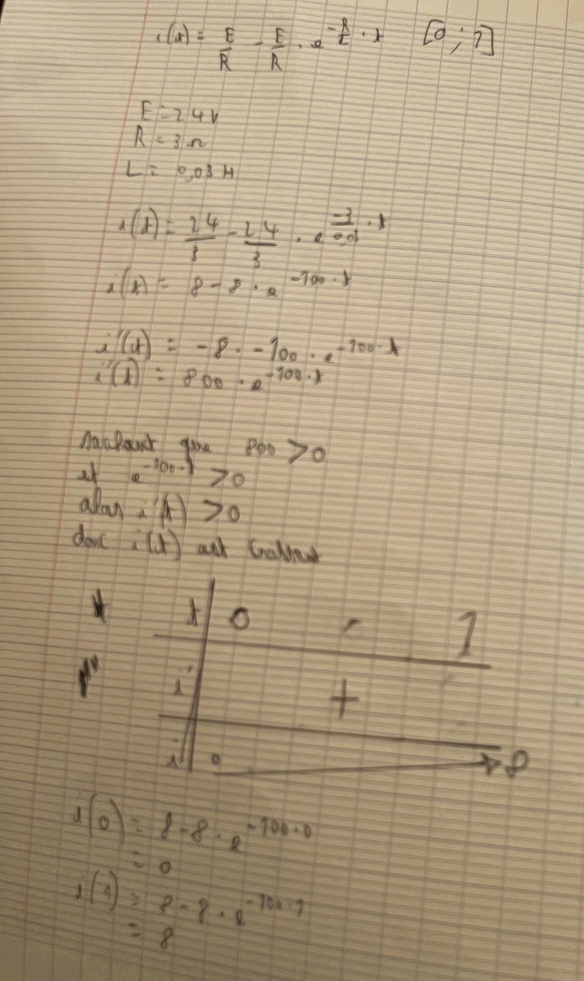 i(t) = E/R - E/R . e^(-R/L . t) [0 ; 1]
E = 24 V
R = 3 Ω
L = 0,03 H
i(t) = 24/3 - 24/3 . e^(-3/0,03 . t)
i(t) = 8 - 8 . e^(-100 . t)
i'(t) = -8 . -100 . e^(-100 . t)
i'(t) = 800 . e^(-100 . t)
sachant que 800 > 0
et e^(-100 . t) > 0
alors i'(t) > 0
donc i(t) est
t 0 1
i' +
i 0 8
i(0) = 8 - 8 . e^(-100 . 0)
= 0
i(1) = 8 - 8 . e^(-100 . 1)
= 8